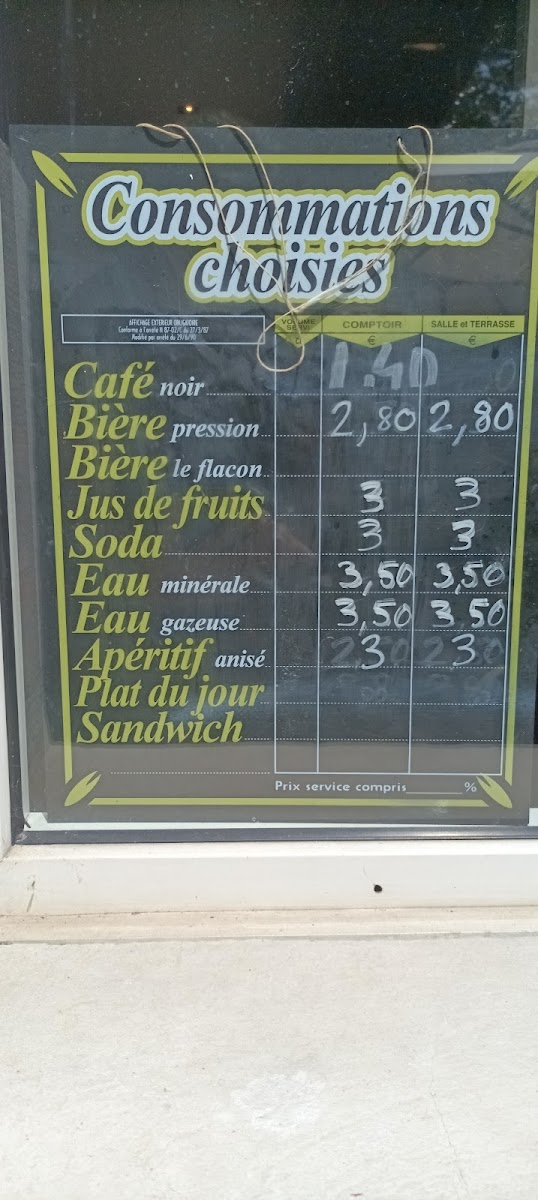 Consommations
choisies
AFFICHAGE EXTERIEUR OBLIGATOIRE
Conforme à l'arrêté N 87-02/C du 27/3/87
Modifié par arrêté du 29/6/90
VOLUME SERVI COMPTOIR SALLE et TERRASSE
€ €
Café noir 1.40
Bière pression 2,80 2,80
Bière le flacon
Jus de fruits 3 3
Soda 3 3
Eau minérale 3,50 3,50
Eau gazeuse 3,50 3,50
Apéritif anisé 3 3
Plat du jour
Sandwich
Prix service compris %